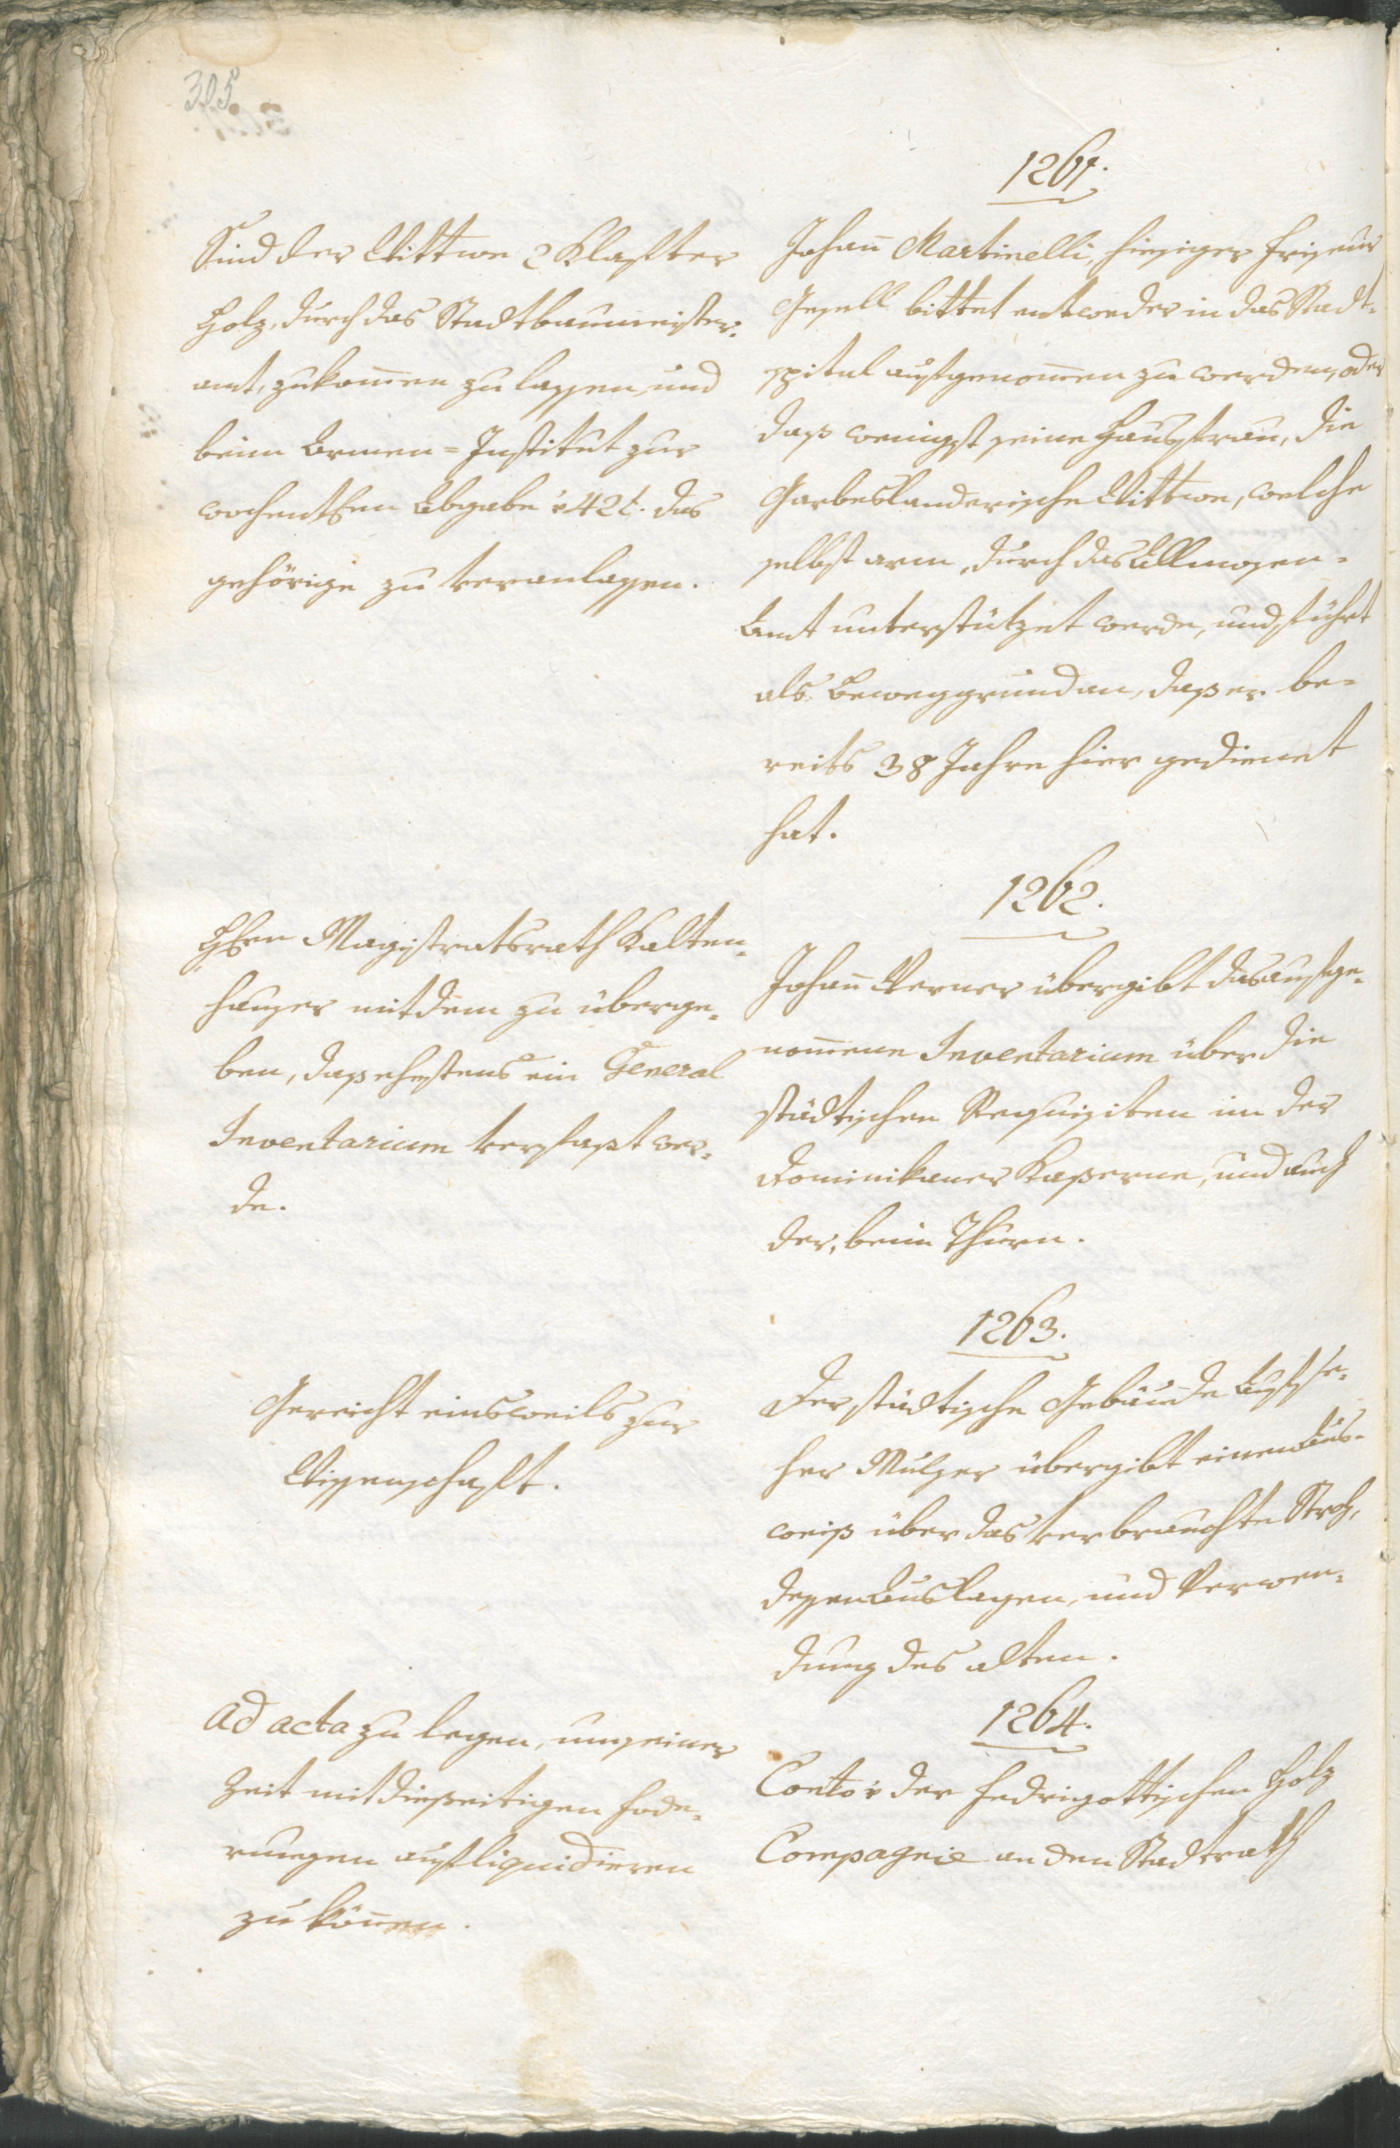 305
1261.
Sind der Wittwe 2 Klafter
Holz, durch das Stadtbaumeister-
amt, zukom̄en zu lassen, und
beim Armen=Institut zur
wochentl.en Abgabe à 42 t. das
gehörige zu veranlassen.
Johan̄ Martinelli, hiesiger Friseur
Gesell bittet entweder in das Stadt-
spital aufgenom̄en zu werden, oder
daß wenigst seine Hausfrau, die
Garbeslanderische Wittwe, welche
selbst arm, durch das Allmosen-
Amt unterstützet werde, und führt
als Beweggrund an, daß er be-
reits 38 Jahre hier gedienet
hat.
1262.
H.Ern Magistratsrath Kalten-
hauser mit dem zu überge-
ben, daß ehestens ein General
Inventarium verfaßt wer-
de.
Johan̄ Werner übergibt das aufge-
nom̄ene Inventarium über die
städtischen Requisiten in der
Dominikaner Kaserne, und auch
der, beim Thurn.
1263.
Gereicht einsweils zur
Wissenschaft.
Der städtische Gebäude Aufse-
her Mulser übergibt einen Aus-
weiß über das verbrauchte Stroh,
dessen Auslagen, und Verwen-
dung des alten.
1264.
ad acta zu legen, um seiner
Zeit mit dießeitigen Fode-
rungen aufliquidieren
zu kön̄en.
Conto v der Fedrigottischen Holz
Compagnie an den Stadtrath